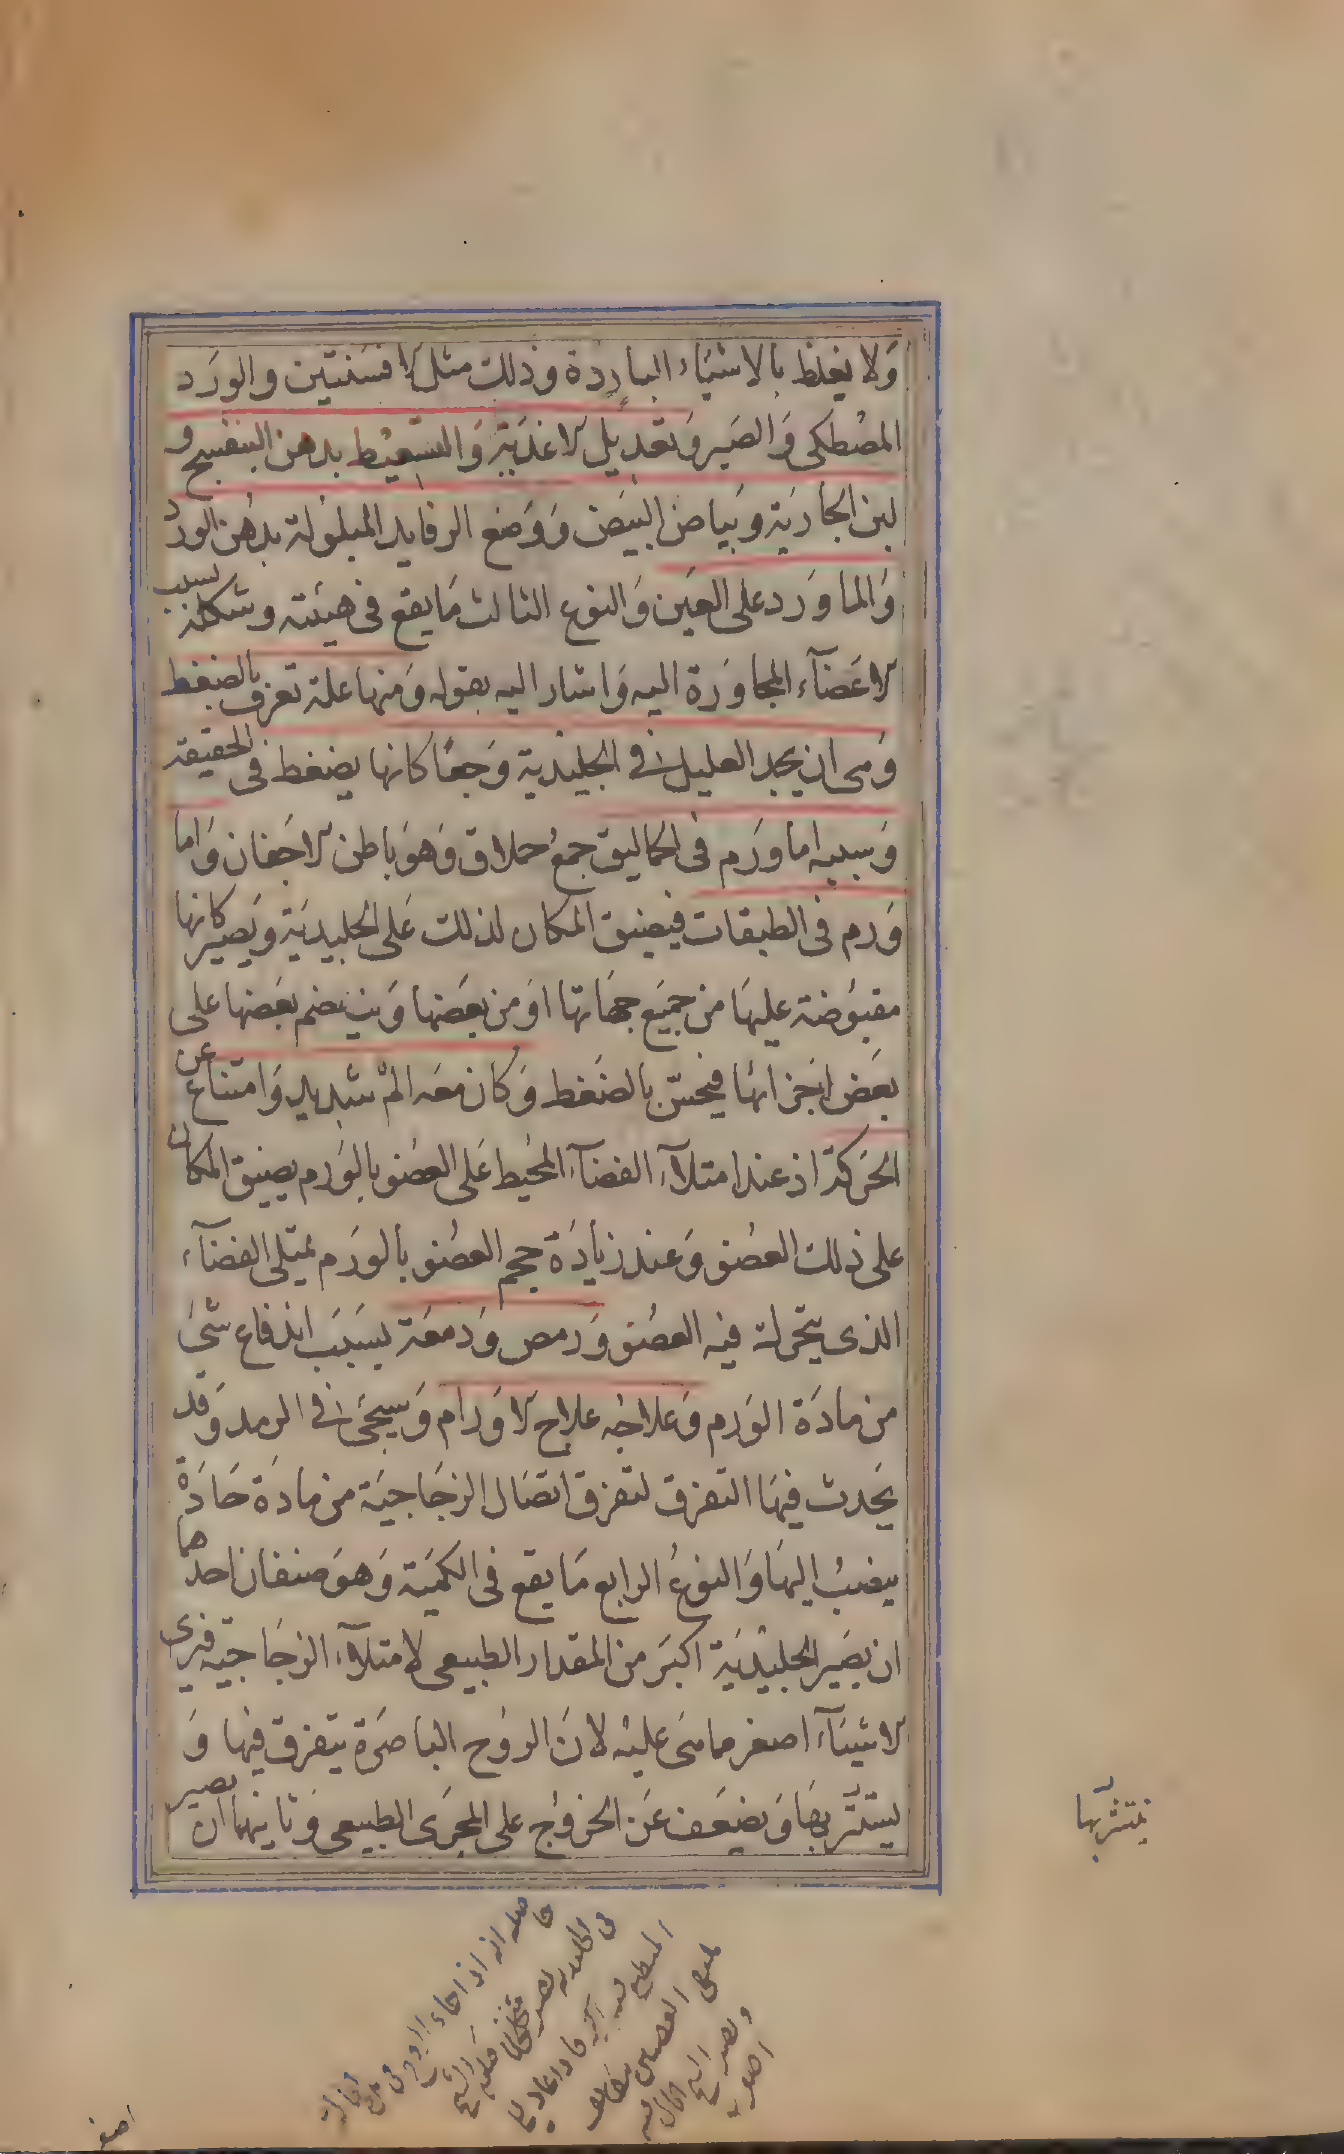 ولا يغلظ بالاشياء الباردة وذلك مثل الافسنتين والورد
المصطكى والصبر وتعديل الاغذية والتسعيط بدهن البنفسج و
لبن الجارية وبياض البيض ووضع الرفايد المبلولة بدهن الورد
والماورد على العين والنوع الثالث ما يقع في هيئته وشكله بسبب
الاعضآء المجاورة اليه واشار اليه بقوله ومنها علة تعرف بالضغط
وهى ان يجد العليل في الجليدية وجعا كانها يضغط فى الحقيقة
وسببه اما ورم فى الحماليق جمع حملاق وهو باطن الاجفان واما
ورم فى الطبقات فيضيق المكان لذلك على الجليدية ويصير كانها
مقبوضة عليها من جميع جهاتها او من بعضها وينضم بعضها على
بعض اجزائها فيحس بالضغط وكان معه الم شديد وامتناع عن
الحركة اذ عند امتلآء الفضآء المحيط على العضو بالورم يضيق المكان
على ذلك العضو وعند زيادة حجم العضو بالورم يمتلى الفضآء
الذى يتحرك فيه العضو ورمص ودمعة بسبب اندفاع شئ
من مادة الورم وعلاجه علاج الاورام وسيجئ في الرمد وقد
يحدث فيها التفرق لتفرق اتصال الزجاجية من مادة حادة
ينصب اليها والنوع الرابع ما يقع فى الكمية وهو صنفان احدهما
ان يصير الجليدية اكبر من المقدار الطبيعى لامتلآء الزجاجية فيرى
الاشيآء اصغر مما هى عليه لان الروح الباصرة يتفرق فيها و
يستتر بها ويضعف عن الخروج على المجرى الطبيعى وثانيهما ان يصير
ينتشر بها
حاصله انه اذا جاء الروح
اصغر